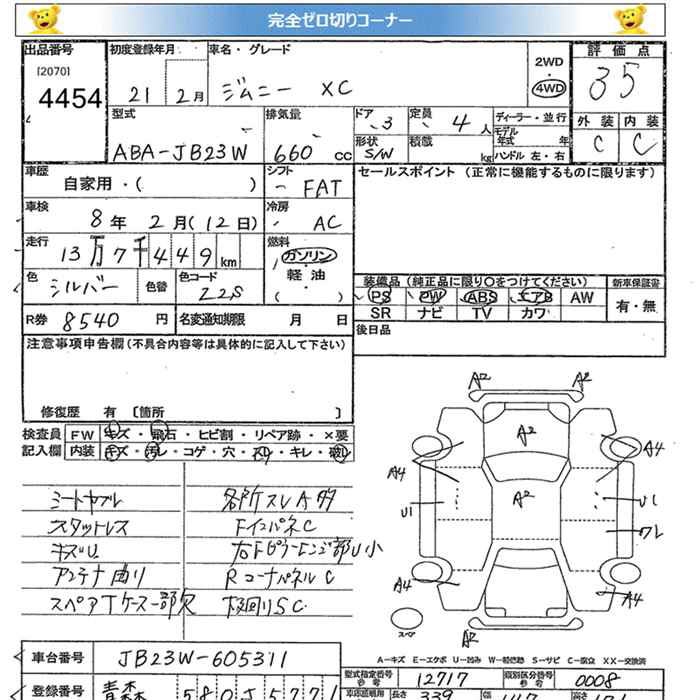 完全ゼロ切りコーナー
出品番号 [2070] 4454
初度登録年月 21 年 2月
車名・グレード ジムニー XC
2WD 4WD
評価点 35
外装 C 内装 C
型式 ABA-JB23W
排気量 660 cc
ドア 3
形状 S/W
定員 4 人
積載 kg
ディーラー・並行
モデル年式 年
ハンドル 左・右
車歴 自家用・( )
シフト FAT
セールスポイント (正常に機能するものに限ります)
車検 8年 2月(12日)
冷房 AC
走行 13万7千449km
燃料 ガソリン 軽油 ( )
色 シルバー 色替
色コード Z2S
装備品 (純正品に限り○をつけてください)
PS PW ABS エアB AW
SR ナビ TV カワ
新車保証書 有・無
R券 8540 円
名変通知期限 月 日
後日品
注意事項申告欄 (不具合内容等は具体的に記入して下さい)
修復歴 有 [箇所 ]
検査員記入欄
FW キズ・飛石・ヒビ割・リペア跡・×要
内装 キズ・汚レ・コゲ・穴・スレ・キレ・破レ
シートヤブレ 各所スレA多
スタットレス FインパネC
キズU 右Fピラーヒンジ部U小
アンテナ曲り RコーナーパネルC
スペアTケース一部欠 下廻りSC
A2 A2
A2
A4 A4
A2
U1 U1
ワレ
A4 A4
スペア
A2
A-キズ E-エクボ U-凹み W-補修跡 S-サビ C-腐食 XX-交換済
車台番号 JB23W-605311
型式指定番号 12717
類別区分番号 0008
登録番号 青森 580 5771
長さ 339